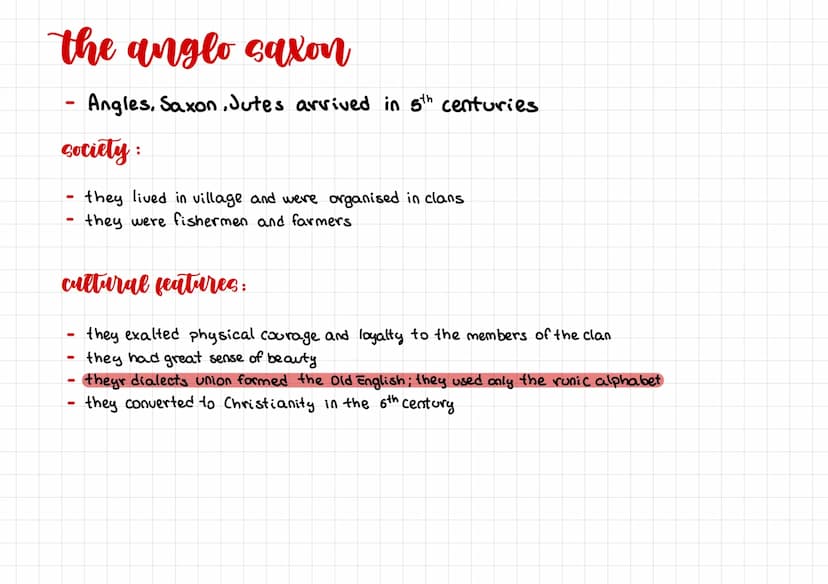 the anglo saxon
- Angles, Saxon, Jutes arrived in 5th centuries
society:
- they lived in village and were organised in clans
- they were fishermen and farmers
cultural features:
- they exalted physical courage and loyalty to the members of the clan
- they had great sense of beauty
- theyr dialects union formed the Old English; they used only the runic alphabet
- they converted to Christianity in the 6th century